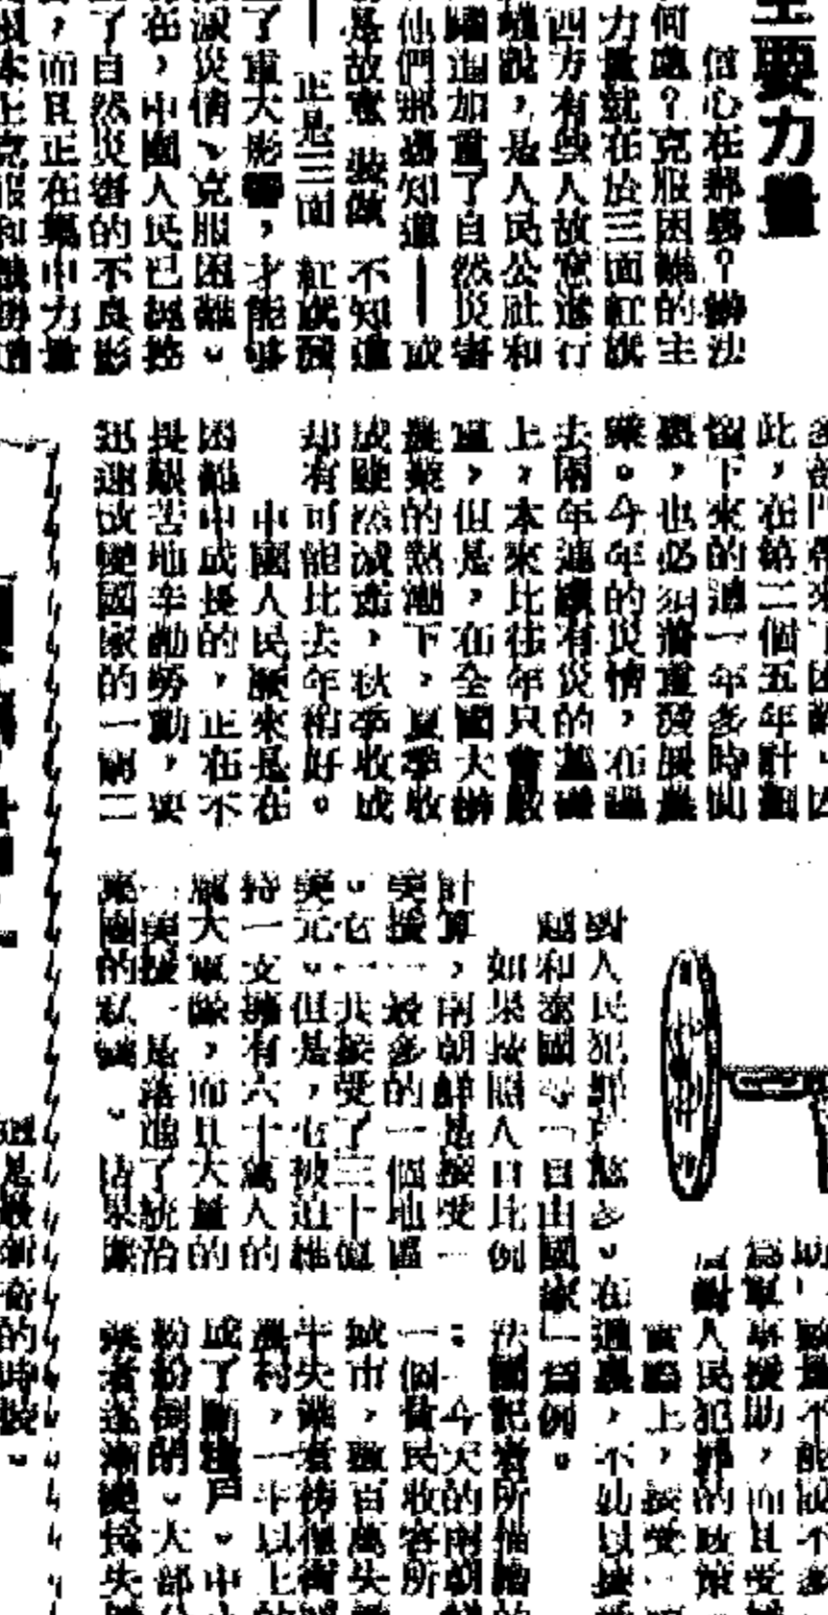 主要力量
信心在那裏?辦法
何處?克服困難的主
力量就在於三面紅旗
四方有些人故意進行
說,是人民公社和
躍進加重了自然災害
他們那裏知道——或
是故意裝做不知道
——正是三面紅旗發
了重大影響,才能够
減災情、克服困難。
在,中國人民已經控
了自然災害的不良影
,而且正在集中力量
根本上克服和戰勝
多部門帶來了困難。因
此,在第三個五年計劃
留下來的這一年多時間
裏,也必須着重發展農
業。今年的災情,在過
去兩年連續有災的基礎
上,本來比往年只會嚴
重,但是,在全國大辦
農業的熱潮下,夏季收
成雖然減產,秋季收成
却有可能比去年稍好。
中國人民歷來是在
困難中成長的,正在不
畏艱苦地辛勤勞動,要
迅速改變國家的一窮二
助,數量不能說不多
爲軍事援助,而且受
人民犯罪的政策
實際上,接受「
對人民犯罪行愈多。在這裏,不妨以援
越和泰國等「自由國家」爲例。
如果按照人口比例
計算,南朝鮮是接受「
美援」最多的一個地區
。它一共接受了三十億
美元。但是,它被迫維
持一支擁有六十萬人的
龐大軍隊,而且大量的
「美援」是落進了統治
集團的私囊。結果
法國記者所描繪的
:「今天的南朝鮮
一個貧民收容所
城市,數百萬失
半失業者徬徨街
農村,一半以上的
成了斷糧戶。中
紛紛倒閉。大部分
這是最新奇的時裝。